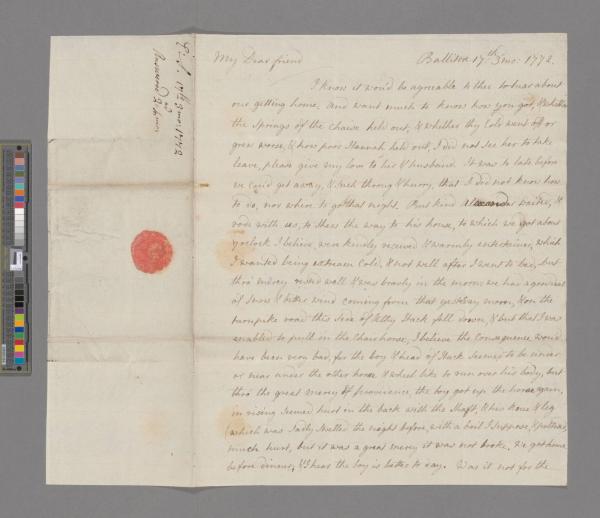 R. S. 17th 3mo: 1772
My Dear friend
Ballitore 17th 3mo: 1772.
I know it would be agreeable to thee to hear about
our getting home. and want much to know how you got, & whether
the Springs of the chaise held out, & whether thy Cold went off or
grew worse, & how poor Hannah held out, I did not see her to take
leave, please give my love to her & husband. It was to late before
we could get away, & such throng & hurry, that I did not know how
to do, nor where to go that night. But kind Alexander waited, &
rode with us, to shew the way to his house, to which we got about
oclock I believe, were kindly received & warmly entertained, which
I wanted being extream Cold, & not well after I went to bed, but
thro' mercy rested well & was bravely in the morn: we had a good deal
of Snow & bitter wind coming from that yesterday morn, & on the
turnpike road this side of Kilty Hack fell down, & but that I was
enabled to pull in the Chair horse, I believe the Consequence would
have been very bad, for the boy & head of Hack seemed to be under
or near under the other horse & wheel like to run over his body, but
thro' the great mercy of Providence, the boy got up the horse again,
in rising seemed hurt in the back with the Shaft, & his knee & leg
(which was sadly swelled the night before, with a boil I suppose, & poulticed)
much hurt, but it was a great mercy it was not broke. We got home
before dinner, & I hear the boy is better to day. Was it not for the